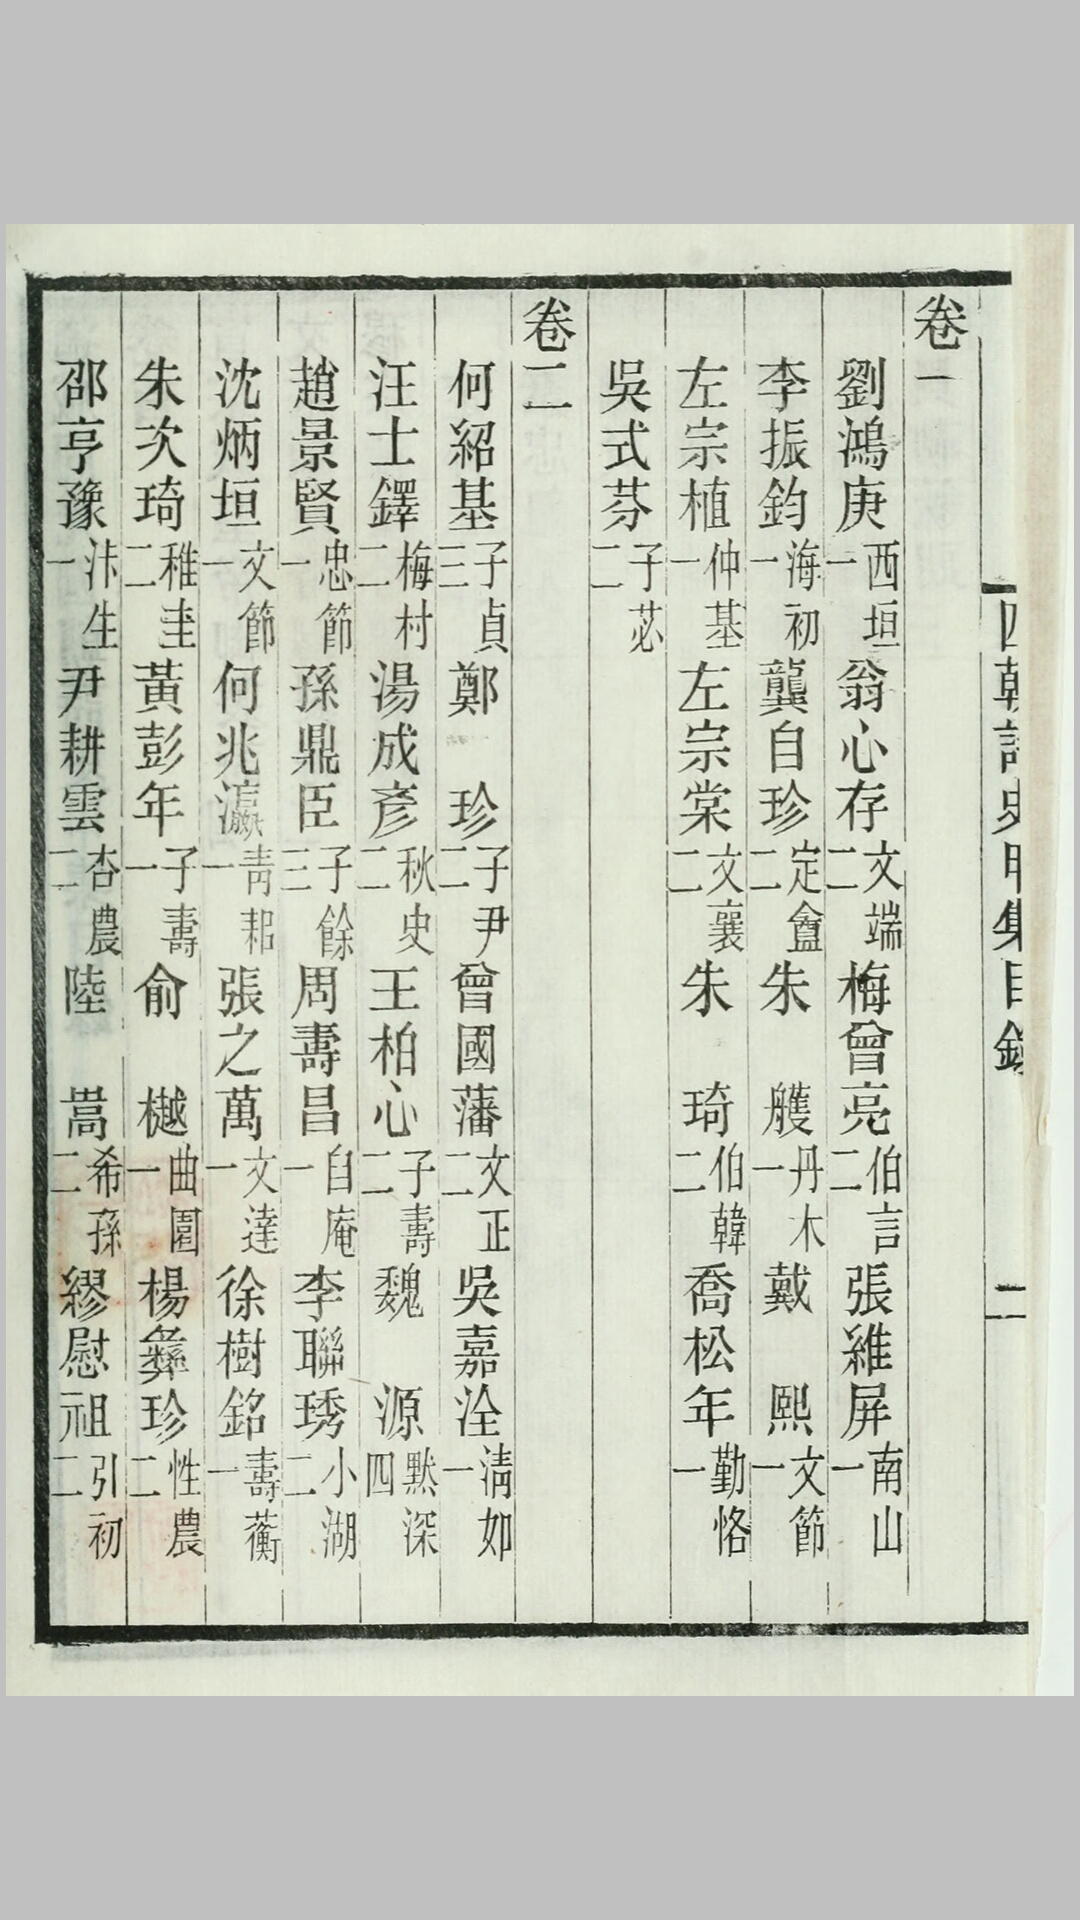 四朝詩史甲集目錄 二
卷一
劉鴻庚 西垣一 翁心存 文端二 梅曾亮 伯言二 張維屏 南山一
李振鈞 海初一 龔自珍 定盦二 朱雘 丹木一 戴熙 文節一
左宗植 仲基一 左宗棠 文襄二 朱琦 伯韓二 喬松年 勤恪一
吳式芬 子苾二
卷二
何紹基 子貞三 鄭珍 子尹二 曾國藩 文正二 吳嘉洤 清如一
汪士鐸 梅村二 湯成彥 秋史二 王柏心 子壽二 魏源 默深四
趙景賢 忠節一 孫鼎臣 子餘三 周壽昌 自庵一 李聯琇 小湖二
沈炳垣 文節一 何兆瀛 青耜一 張之萬 文達一 徐樹銘 壽蘅一
朱次琦 稚圭二 黃彭年 子壽一 俞樾 曲園一 楊彝珍 性農二
邵亨豫 汴生一 尹耕雲 杏農二 陸嵩 希孫二 繆慰祖 引初二